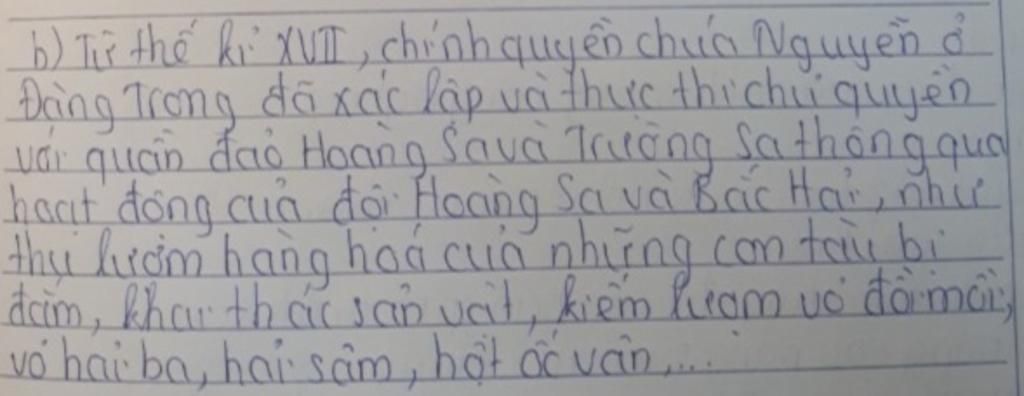 b) Từ thế kỉ XVII, chính quyền chúa Nguyễn ở
Đàng Trong đã xác lập và thực thi chủ quyền
với quần đảo Hoàng Sa và Trường Sa thông qua
hoạt động của đội Hoàng Sa và Bắc Hải, như
thu lượm hàng hoá của những con tàu bị
đắm, khai thác sản vật, kiếm lượm vỏ đồi mồi,
vỏ hải ba, hải sâm, hột ốc vân,...